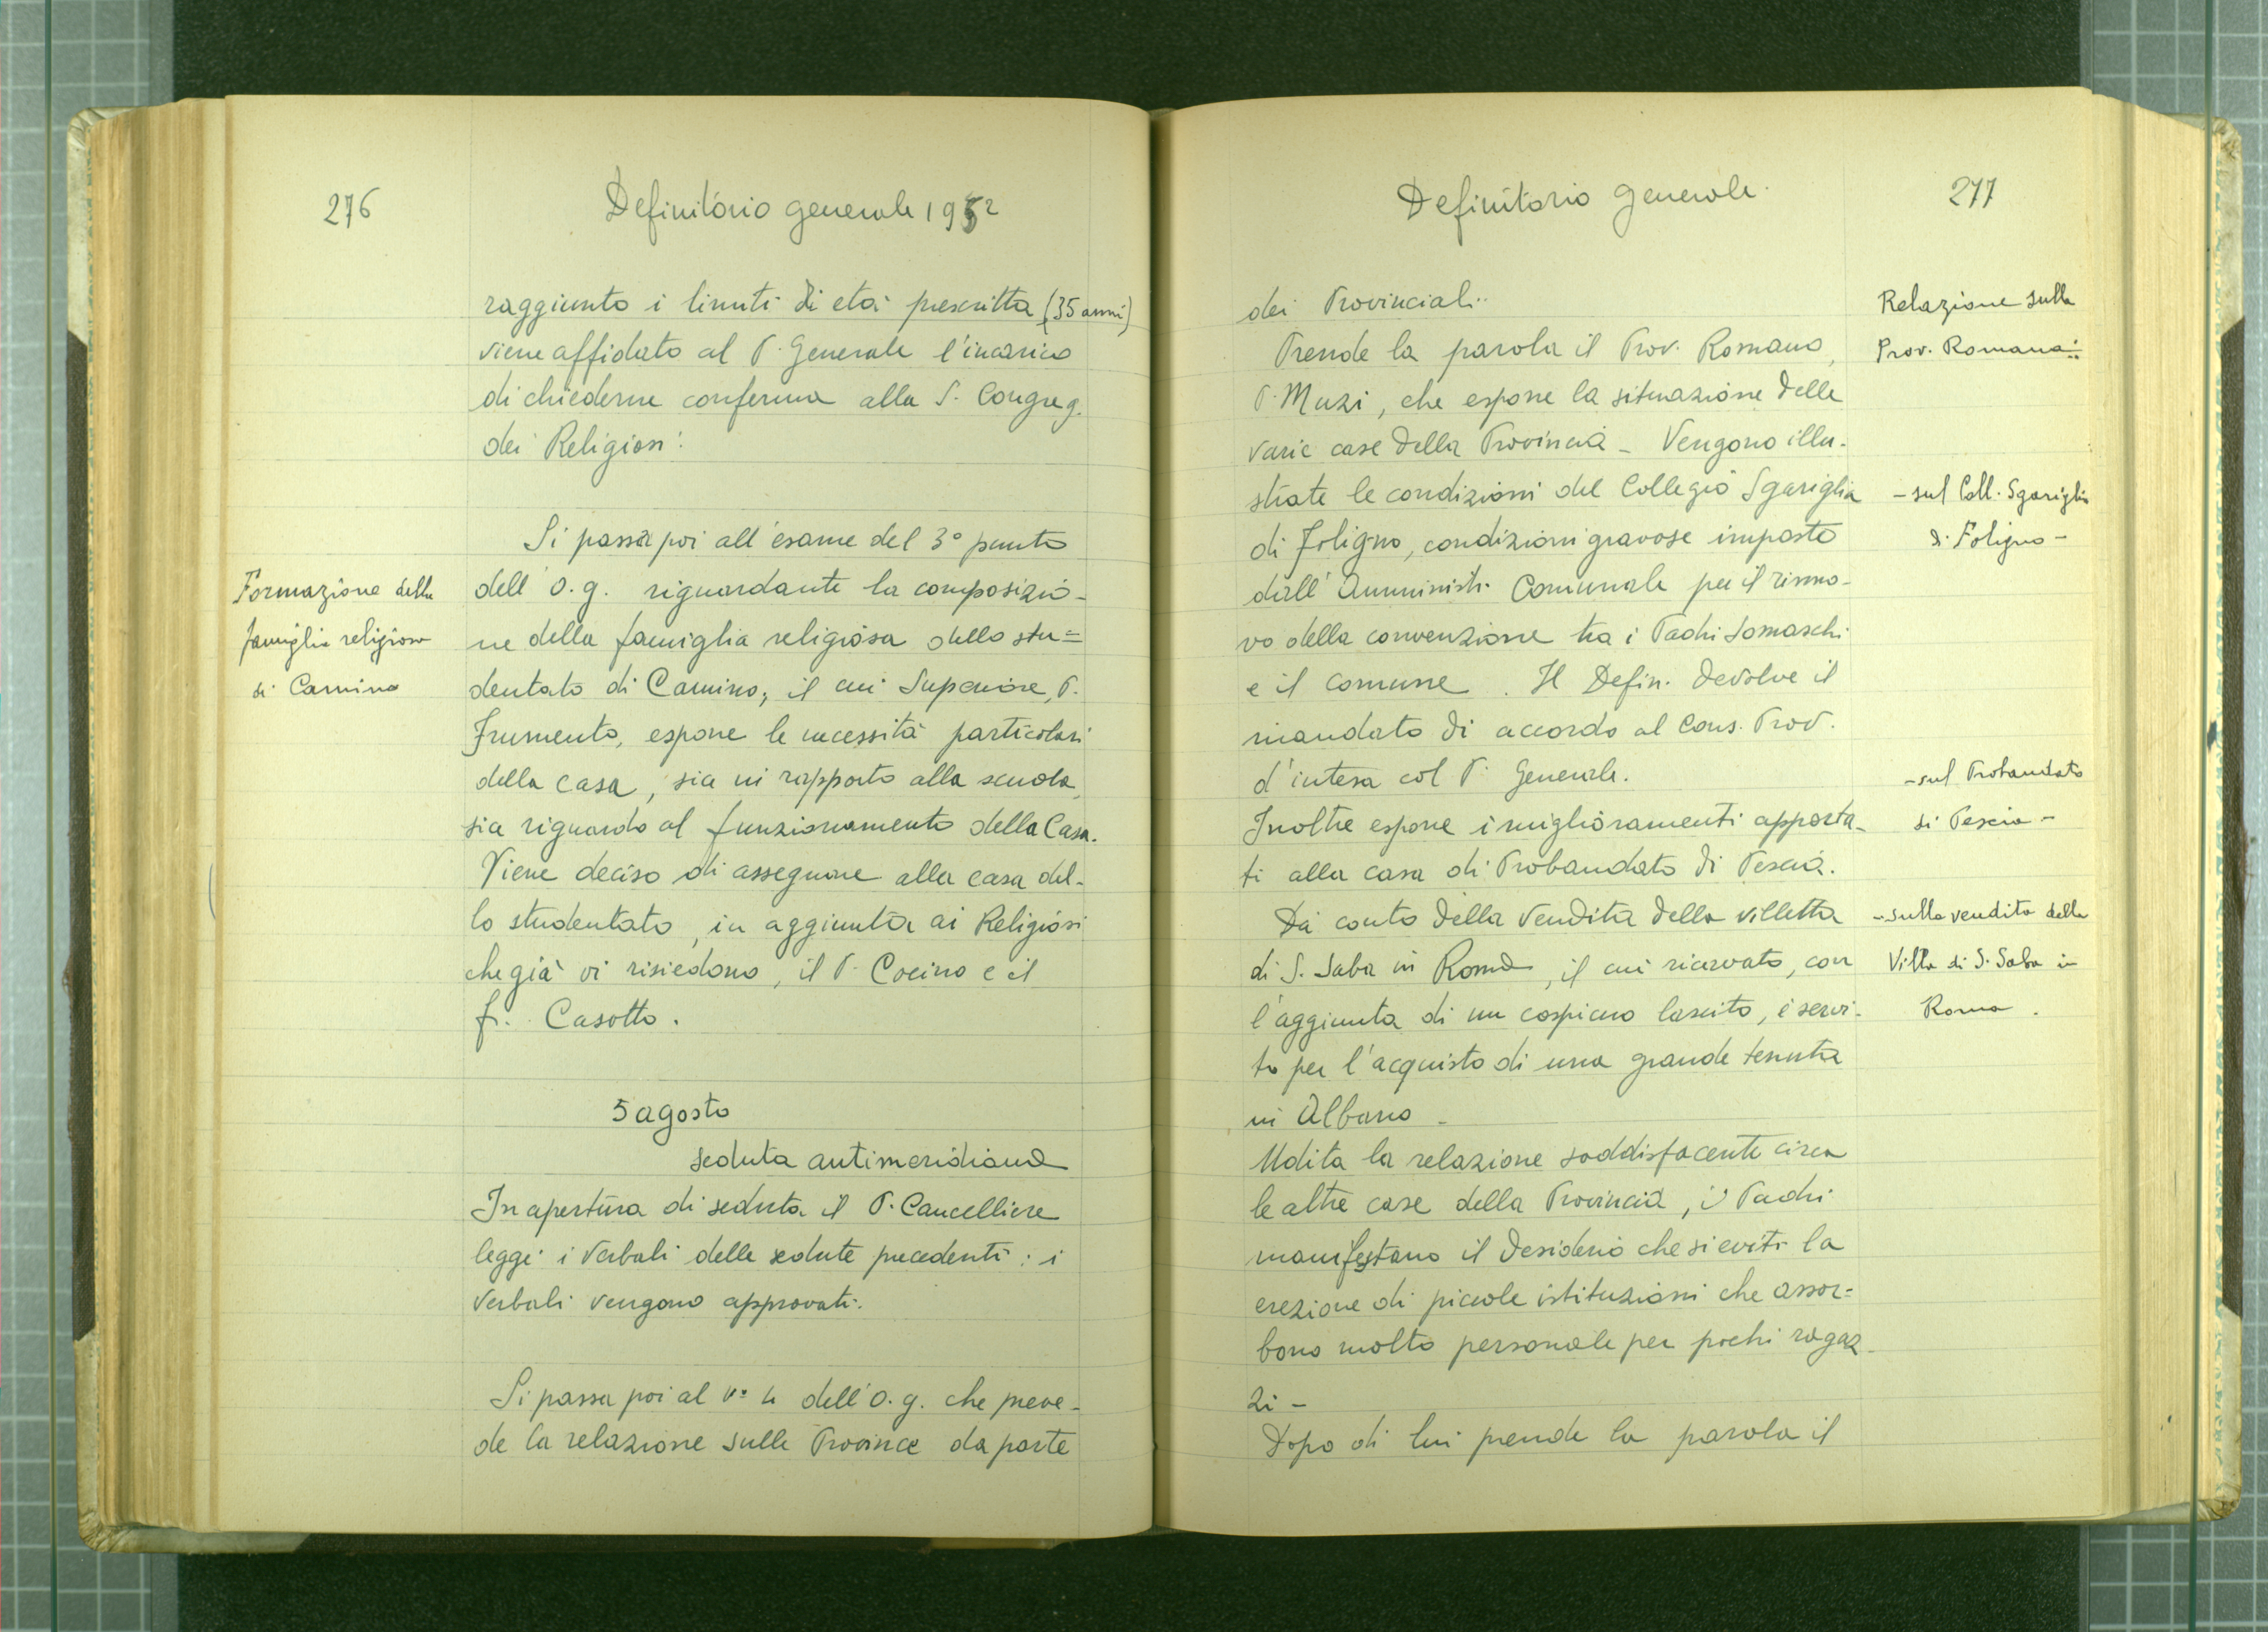 276
Definitorio generale 1952
raggiunto i limiti di età prescritta (35 anni)
viene affidato al P. Generale l'incarico
di chiederne conferma alla S. Congreg.
dei Religiosi.
Si passa poi all'esame del 3° punto
Formazione della
famiglia religiosa
di Camino
dell'O.g. riguardante la composizio-
ne della famiglia religiosa dello stu=
dentato di Camino, il cui Superiore, P.
Frumento, espone le necessità particolari
della casa, sia in rapporto alla scuola,
sia riguardo al funzionamento della Casa.
Viene deciso di assegnare alla casa del-
lo studentato, in aggiunta ai Religiosi
che già vi risiedono, il P. Cocino e il
fr. Casotto.
5 agosto
seduta antimeridiana
In apertura di seduta il P. Cancelliere
legge i verbali delle sedute precedenti: i
verbali vengono approvati.
Si passa poi al n° 4 dell'O.g. che preve-
de la relazione sulle Province da parte
Definitorio generale
277
dei Provinciali.
Relazione sulla
Prov. Romana:
Prende la parola il Prov. Romano,
P. Muzi, che espone la situazione delle
varie case della Provincia - Vengono illu-
strate le condizioni del Collegio Sgariglia
- sul Coll. Sgariglia
di Foligno -
di Foligno, condizioni gravose imposte
dall'Amministr. Comunale per il rinno-
vo della convenzione tra i Padri Somaschi
e il comune. Il Defin. devolve il
mandato di accordo al Cons. Prov.
d'intesa col P. Generale.
- sul Probandato
di Pescia -
Inoltre espone i miglioramenti apporta-
ti alla casa di Probandato di Pescia.
Dà conto della vendita della villetta
- sulla vendita della
Villa di S. Saba in
Roma.
di S. Saba in Roma, il cui ricavato, con
l'aggiunta di un cospicuo lascito, è servi-
to per l'acquisto di una grande tenuta
in Albano -
Udita la relazione soddisfacente circa
le altre case della Provincia, i Padri
manifestano il desiderio che si eviti la
erezione di piccole istituzioni che assor=
bono molto personale per pochi ragaz-
zi -
Dopo di lui prende la parola il